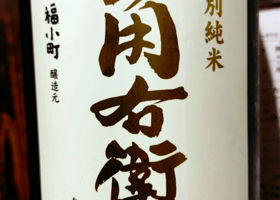 別純米
角右衛
福小町
醸造元